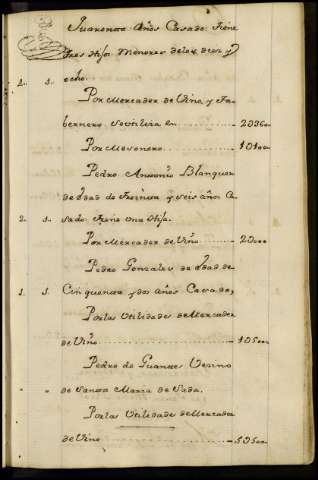 Quarenta Años Casado. tiene
tres Hijos Menores de los diez y
1. 1. ocho.
Por Mercader de Vino y Ta-
bernero se utiliza en ..... 2096
Por Mesonero ..... 1010
Pedro Antonio Blanquer
de edad de treinta y seis años Ca-
2. 1. sado tiene una Hija.
Por Mercader de Vino ..... 2000
Pedro Gonzalez de edad de
1. 1. Cinquenta y dos años Casado,
Por las Utilidades de Mercader
de Vino ..... 1050
Pedro de Vecino
" " de Santa Maria de Sada.
Por las Utilidades de Mercader
de Vino ..... 595